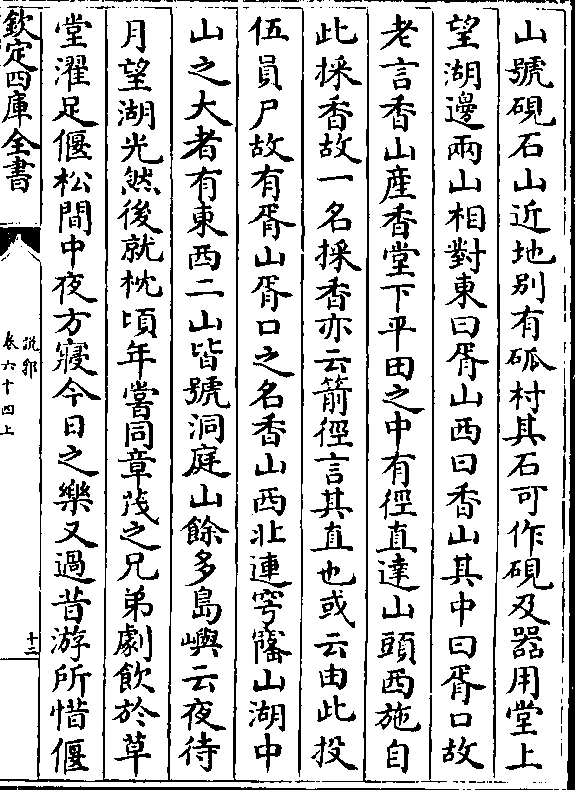 山號硯石山近地别有砥村其石可作硯及器用堂上
望湖邊兩山相對東曰胥山西曰香山其中曰胥口故
老言香山産香堂下平田之中有徑直達山頭西施自
此採香故一名採香亦云箭徑言其直也或云由此投
伍員尸故有胥山胥口之名香山西北連穹窿山湖中
山之大者有東西二山皆號洞庭山餘多島嶼云夜待
月望湖光然後就枕頃年嘗同章茂之兄弟劇飲於草
堂濯足偃松間中夜方寢今日之樂又過昔游所惜偃
欽定四庫全書
說郛
卷六十四上
十二